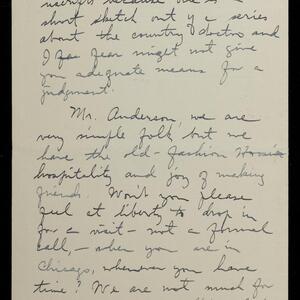 because one is a
short sketch out of a series
about the country doctor and
I fear might not give
you adequate means for a
judgment.
Mr. Anderson, we are
very simple folk but we
have the old-fashion Hoosier
hospitality and joy of making
friends. Won't you please
feel at liberty to drop in
for a visit - not a formal
call, - when you are in
Chicago, whenever you have
time? We are not much for